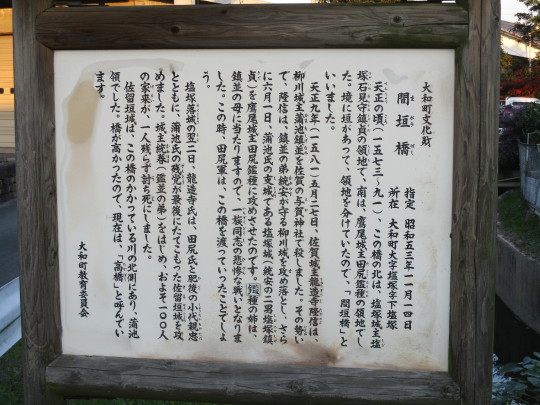 大和町文化財
間垣橋
指定 昭和五三年一一月一四日
所在 大和町大字塩塚字下塩塚
天正の頃(一五七三-九一)、この橋の北は、塩塚城主塩
塚石見守鎮貞の領地で、南は、鷹尾城主田尻鑑種の領地でし
た。境に垣があって、領地を分けていたので、「間垣橋」と
いいました。
天正九年(一五八一)五月二七日、佐賀城主龍造寺隆信は、
柳川城主蒲池鎮並を佐賀の与賀神社で殺しました。その勢い
で、隆信は、鎮並の弟統安が守る柳川城を攻め落とし、さら
に六月一日、蒲池氏の支城である塩塚城、統安の二男塩塚鎮
貞)を鷹尾城主田尻鑑種に攻めさせたのです。鑑種の姉は、
鎮並の母に当たりますので、一族同志の悲惨な戦いとなりま
した。この時、田尻軍は、この橋を渡っていったことでしょ
う。
塩塚落城の翌二日、龍造寺氏は、田尻氏と肥後の小代親忠
とともに、蒲池氏の残党が最後にたてこもった佐留垣城を攻
めました。城主統春(鑑並の弟)をはじめ、およそ一〇〇人
の家来が、一人残らず討ち死にしました。
佐留垣城は、この橋のかかっている川の北側にあり、蒲池
領でした。橋が高かったので、現在は、「高橋」と呼んでい
ます。
大和町教育委員会